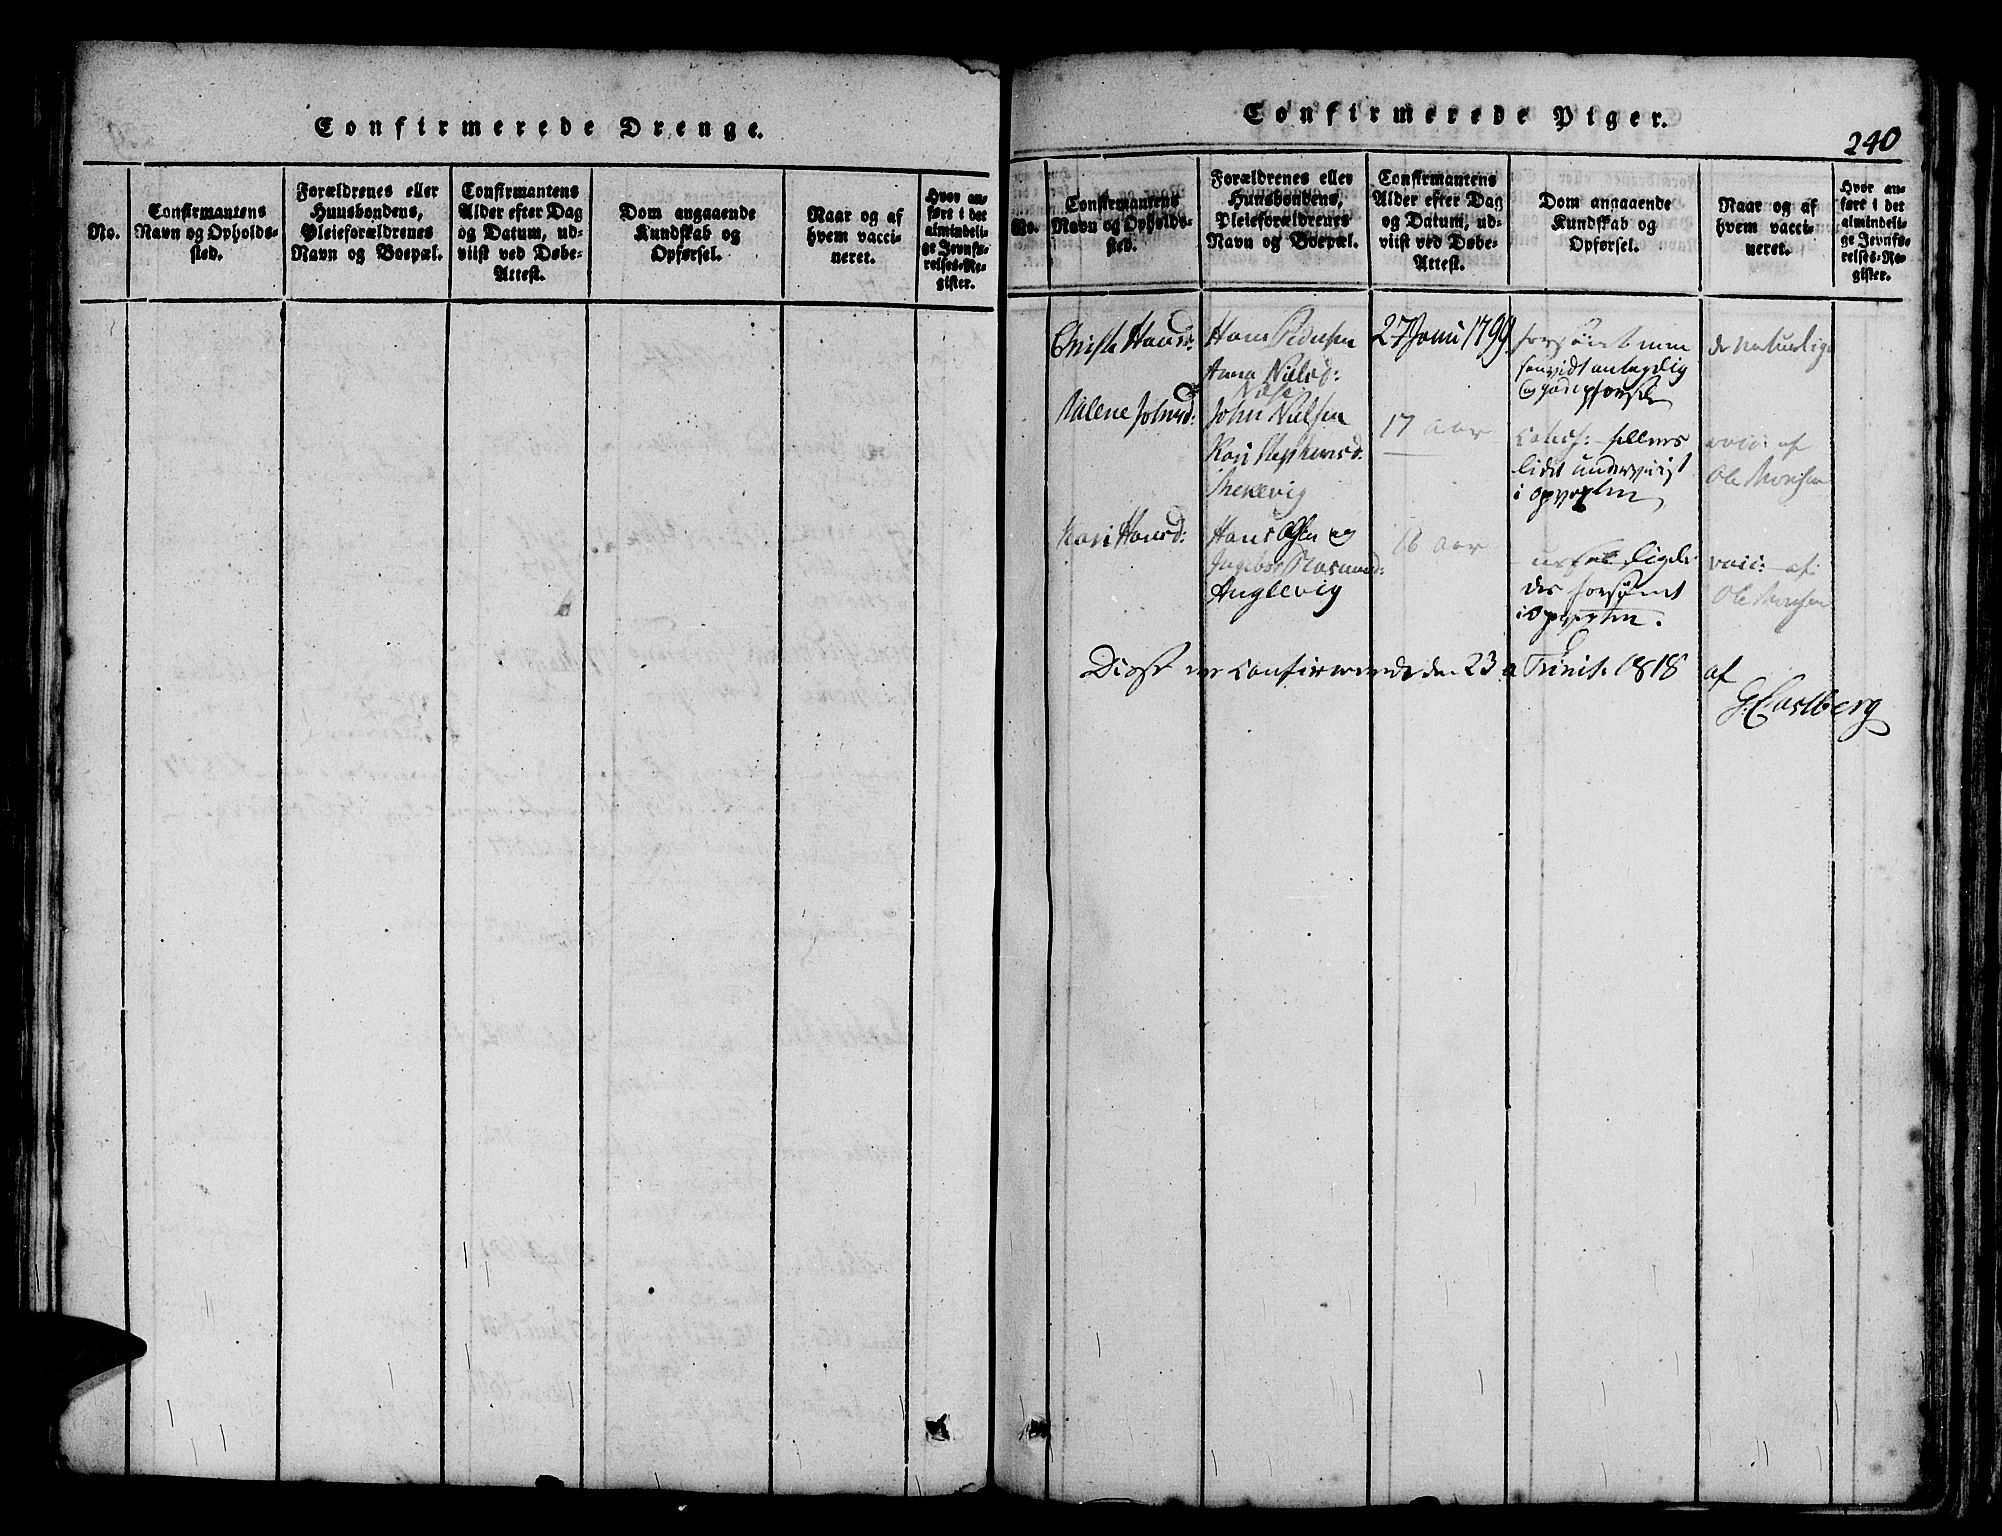 Confirmerede Drenge.
No.
Confirmantens
Navn og Opholds-
sted.
Forældrenes eller
Huusbondens,
Pleieforældrenes
Navn og Boepæl.
Confirmantens
Alder efter Dag
og Datum, ud-
viist ved Døbe-
Attest.
Dom angaaende
Kundskab og
Opførsel.
Naar og af
hvem vacci-
neret.
Hvor an-
ført i det
almindeli-
ge Jevnfø-
relses-Re-
gister.
Confirmerede Piger.
240
No.
Confirmantens
Navn og Opholds-
sted.
Forældrenes eller
Huusbondens,
Pleieforældrenes
Navn og Boepæl.
Confirmantens
Alder efter Dag
og Datum, ud-
viist ved Døbe-
Attest.
Dom angaaende
Kundskab og
Opførsel.
Naar og af
hvem vacci-
neret.
Hvor an-
ført i det
almindeli-
ge Jevnfø-
relses-Re-
gister.
Hansd: Hans Pedersen 27 Juni 1799 de naturlige
Anna Nielsd:
Malene Johnsd: John Nielsen 17 aar vacc: af
Kari Stephensd: Ole Monsen
i opvexten
Kari Hansd: Hans Olsen og 16 aar vacc: af
Ole Monsen
Anglevig forsømt
i opvexten.
Disse ere Confirmerede den 23 a Trinit. 1818 af
G: Carlberg